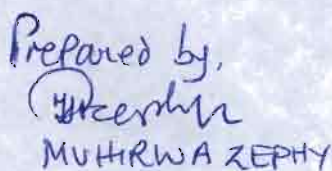 Prepared by,
MUHIRWA ZEPHY